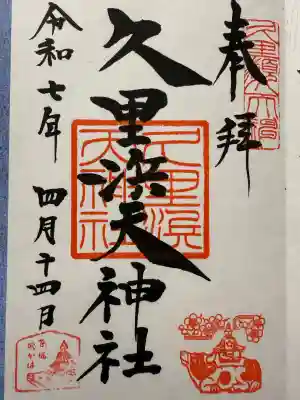 奉拝
久里浜天神社
久里浜天神社
令和七年 四月十四日